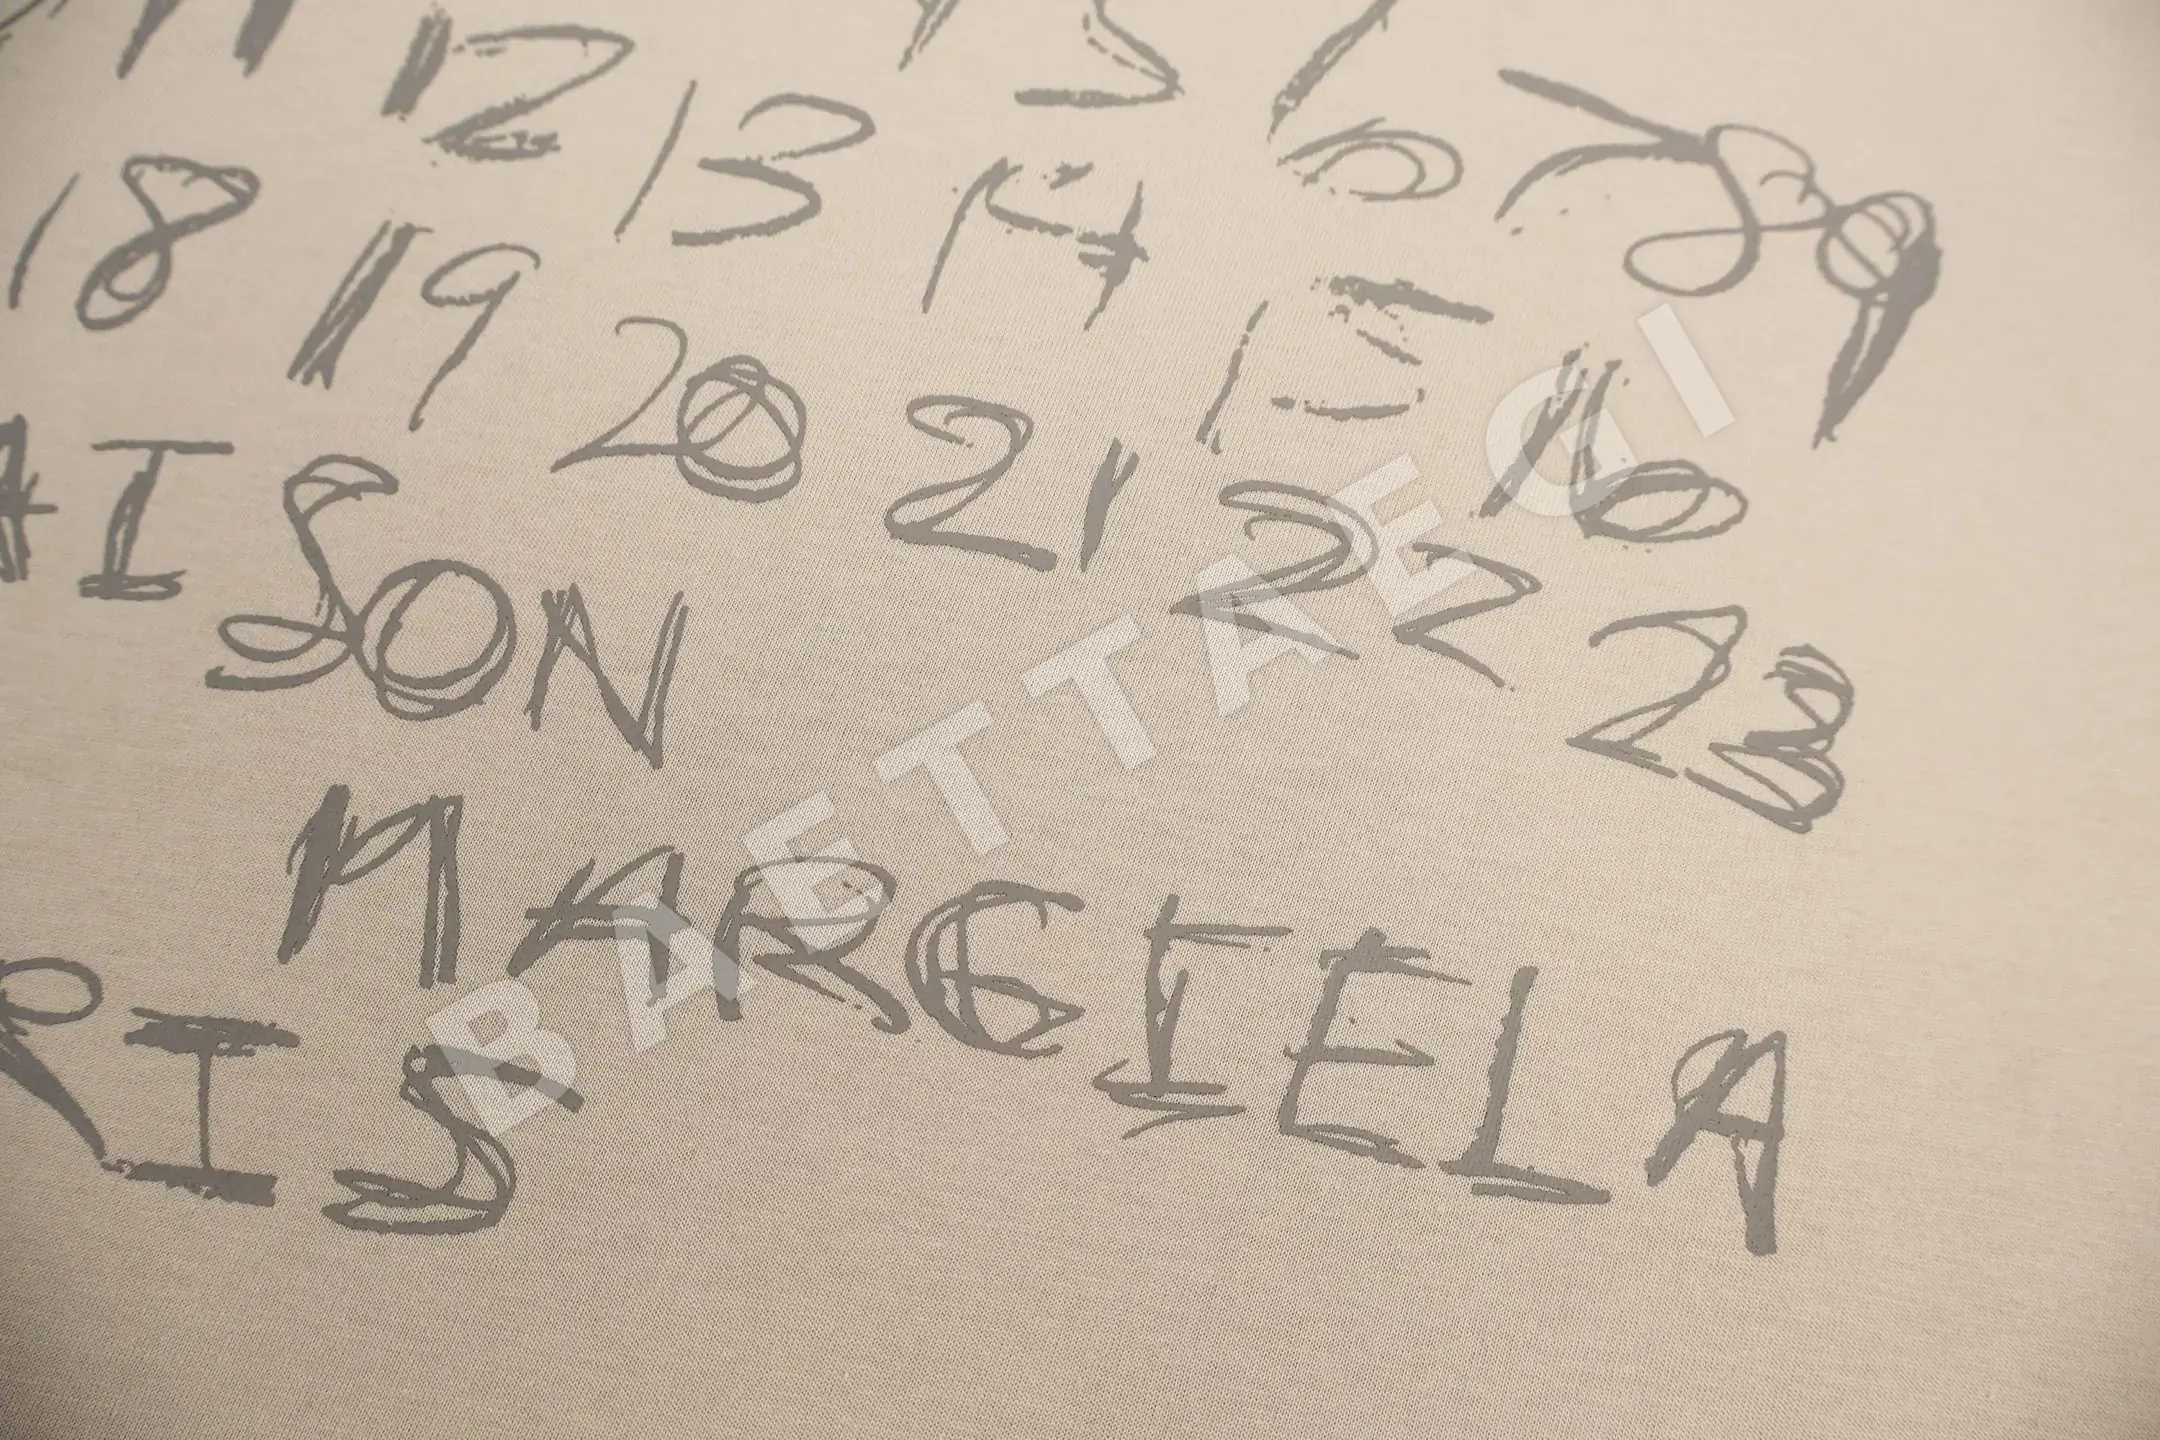 11 12 13 14 15 16
5 6 7 8 9
18 19 20 21 22 23
AISON
MARGIELA
RIS
BAETTAEGI